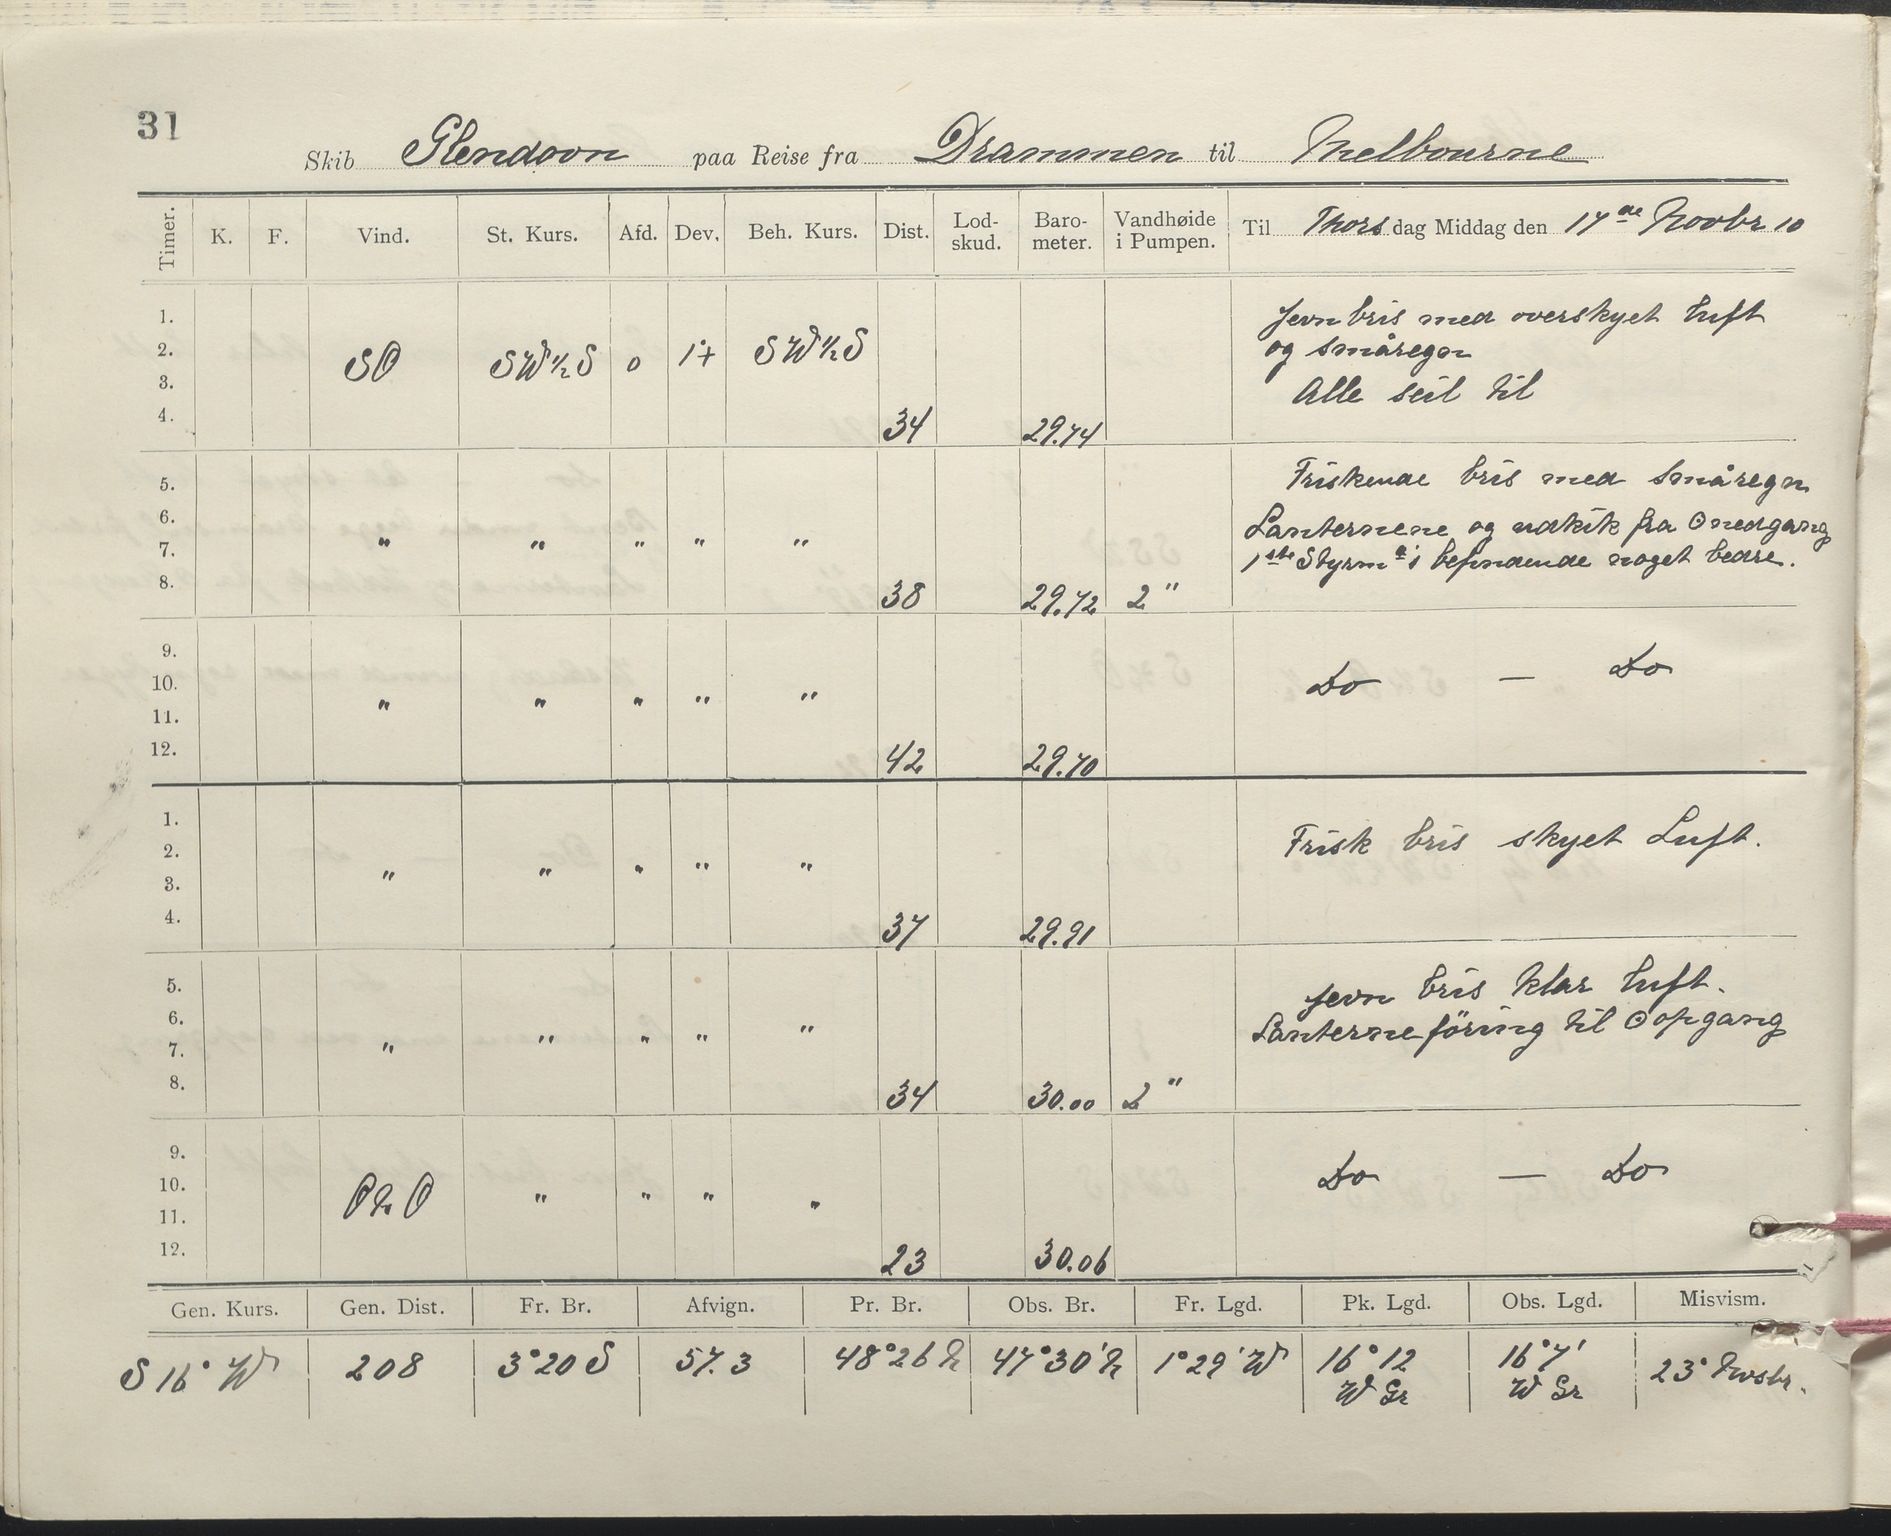 31
Skib Glendoon paa Reise fra Drammen til Melbourne
Timer. K. F. Vind. St. Kurs. Afd. Dev. Beh. Kurs. Dist. Lod-skud. Baro-meter. Vandhøide i Pumpen. Til Thors dag Middag den 17de Novbr 10
1. Jevn bris med overskyet luft
2. SO SW½S 0 1°+ SW½S og småregn
3. Alle seil til
4. 34 29.74
5. Friskende bris med småregn
6. Lanternene og udkik fra ʘnedgang
7. " " " " " 1ste Styrmn's befindende noget bedre.
8. 38 29.72 2"
9.
10. " " " " " Do — Do
11.
12. 42 29.70
1. Frisk bris skyet Luft.
2.
3. " " " " "
4. 37 29.91
5. Jevn bris klar luft.
6. Lanterneföring til ʘopgang
7. " " " " "
8. 34 30.00 2"
9.
10. Do — Do
11. OhO " " " "
12. 23 30.06
Gen. Kurs. Gen. Dist. Fr. Br. Afvign. Pr. Br. Obs. Br. Fr. Lgd. Pk. Lgd. Obs. Lgd. Misvism.
S 16° W 208 3°20 S 57.3 48°26 N 47°30' N 1°29' W 16°12 W Gr 16°7' W Gr 23°